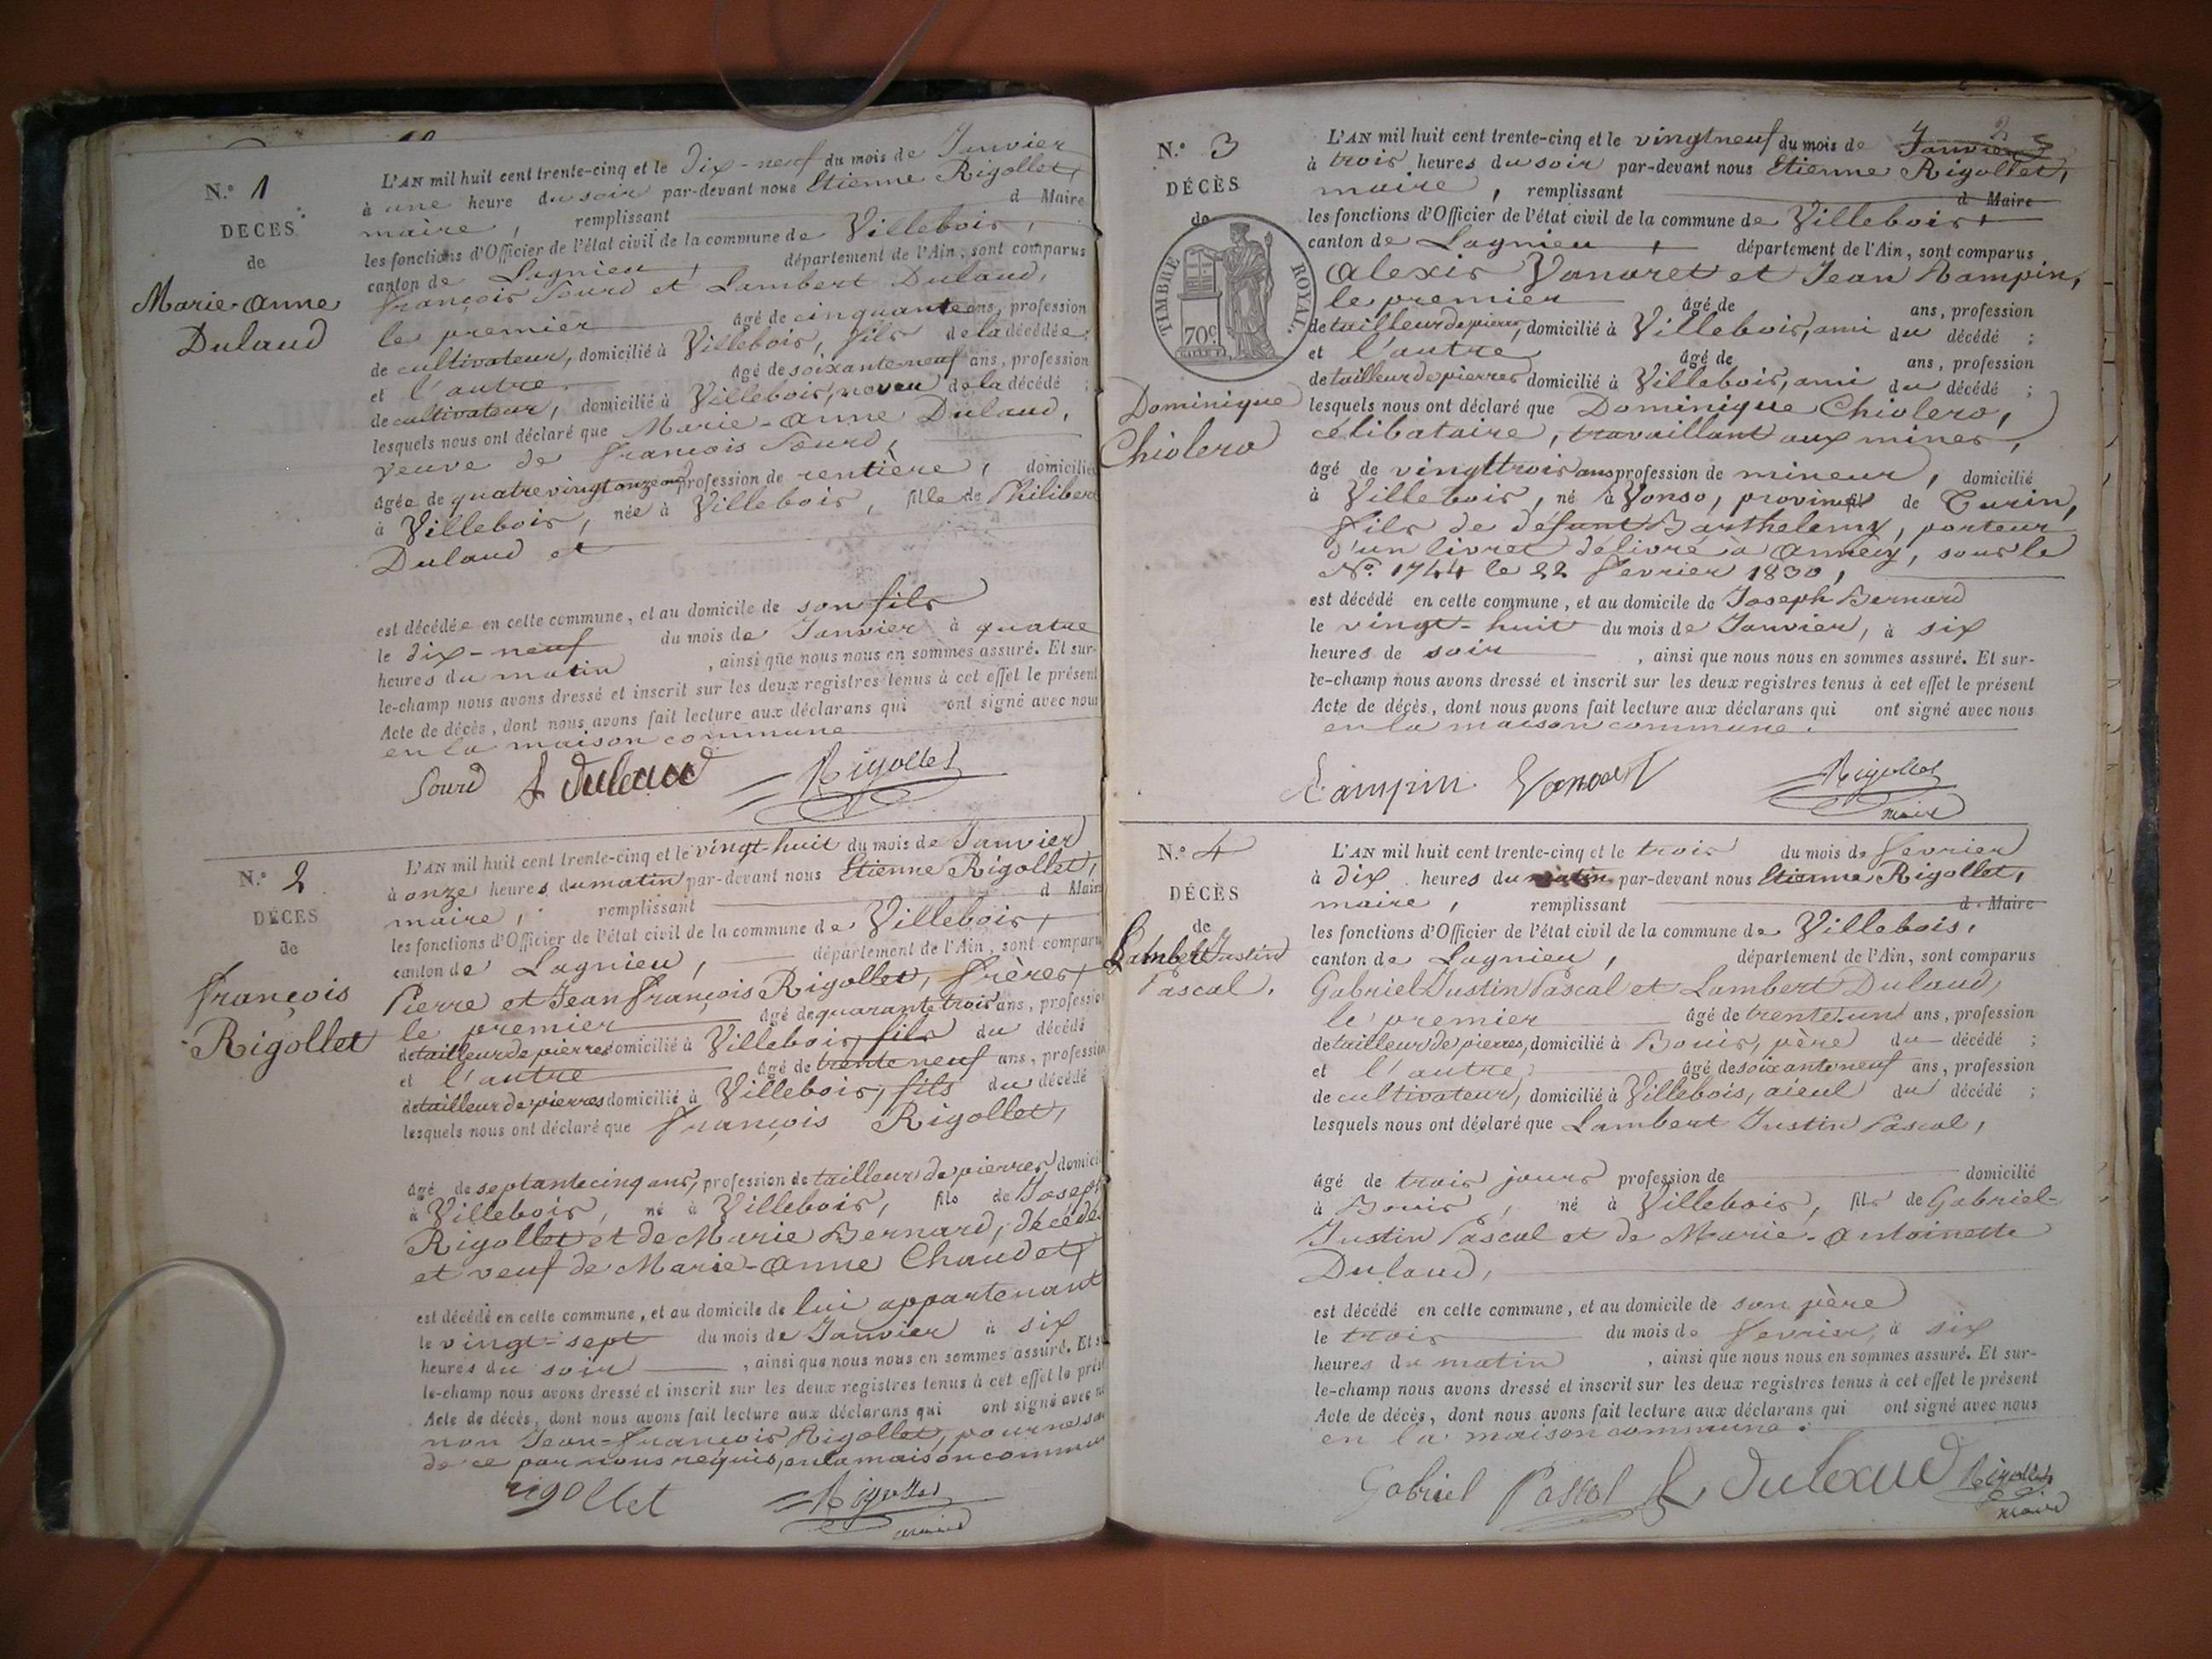 N.° 1
DÉCÈS
de
Marie-Anne
Dulaud
L'AN mil huit cent trente-cinq et le Dix-neuf du mois de Janvier
à une heure du soir par-devant nous Etienne Rigollet,
maire, remplissant d Maire
les fonctions d'Officier de l'état civil de la commune de Villebois,
canton de Lagnieu, département de l'Ain, sont comparus
François Sourd et Lambert Dulaud,
le premier âgé de cinquante ans, profession
de cultivateur, domicilié à Villebois, fils de la décédée;
et l'autre âgé de soixante neuf ans, profession
de cultivateur, domicilié à Villebois, neveu de la décédé ;
lesquels nous ont déclaré que Marie-Anne Dulaud,
veuve de François Sourd,
âgée de quatrevingt onze ans profession de rentière, domicilié
à Villebois, née à Villebois, fille de Philibert
Dulaud et
est décédée en cette commune, et au domicile de son fils
le dix-neuf du mois de Janvier à quatre
heures du matin, ainsi que nous nous en sommes assuré. Et sur-
le-champ nous avons dressé et inscrit sur les deux registres tenus à cet effet le présent
Acte de décès, dont nous avons fait lecture aux déclarans qui ont signé avec nous
en la maison commune
Sourd L Dulaud Rigollet
N.° 2
DÉCES
de
François
Rigollet
L'AN mil huit cent trente-cinq et le vingt-huit du mois de Janvier
à onze heures du matin par-devant nous Etienne Rigollet,
maire, remplissant d Maire
les fonctions d'Officier de l'état civil de la commune de Villebois,
canton de Lagnieu, département de l'Ain, sont comparu
Pierre et Jean François Rigollet, frères,
le premier âgé de quarante trois ans, profession
de tailleur de pierres domicilié à Villebois, fils du décédé
et l'autre âgé de trente neuf ans, profession
de tailleur de pierres domicilié à Villebois, fils du décédé
lesquels nous ont déclaré que François Rigollet,
âgé de septante cinq ans, profession de tailleur de pierres domici
à Villebois, né à Villebois, fils de Joseph
Rigollet et de Marie Bernard, décédé
et veuf de Marie-Anne Chaudet,
est décédé en cette commune, et au domicile de lui appartenant
le vingt-sept du mois de Janvier à six
heures du soir, ainsi que nous nous en sommes assuré. Et s
le-champ nous avons dressé et inscrit sur les deux registres tenus à cet effet le prés
Acte de décès, dont nous avons fait lecture aux déclarans qui ont signé avec n
non Jean-François Rigollet, pour ne sa
de ce par nous requis, en la maison commu
rigollet Rigollet
maire
N.° 3
DÉCÈS
de
TIMBRE ROYAL.
70 c.
Dominique
Chiolero
L'AN mil huit cent trente-cinq et le vingt neuf du mois de Janvier
à trois heures du soir par-devant nous Etienne Rigollet,
maire, remplissant d Maire
les fonctions d'Officier de l'état civil de la commune de Villebois,
canton de Lagnieu, département de l'Ain, sont comparus
Alexis Vanaret et Jean Rampin,
le premier âgé de ans, profession
de tailleur de pierres, domicilié à Villebois, ami du décédé ;
et l'autre âgé de ans, profession
de tailleur de pierres domicilié à Villebois, ami du décédé ;
lesquels nous ont déclaré que Dominique Chiolero,
célibataire, travaillant aux mines,
âgé de vingt trois ans profession de mineur, domicilié
à Villebois, né à Vonso, province de Turin,
fils de défunt Barthelemy, porteur
d'un livret délivré à Annecy, sous le
N.° 1744 le 22 fevrier 1830,
est décédé en cette commune, et au domicile de Joseph Bernard
le vingt-huit du mois de Janvier, à six
heures de soir, ainsi que nous nous en sommes assuré. Et sur-
le-champ nous avons dressé et inscrit sur les deux registres tenus à cet effet le présent
Acte de décès, dont nous avons fait lecture aux déclarans qui ont signé avec nous
en la maison commune.
Rampin Vanaret Rigollet
maire
N.° 4
DÉCÈS
de
Lambert Justin
Pascal.
L'AN mil huit cent trente-cinq et le trois du mois de fevrier
à dix heures du matin par-devant nous Etienne Rigollet,
maire, remplissant d Maire
les fonctions d'Officier de l'état civil de la commune de Villebois,
canton de Lagnieu, département de l'Ain, sont comparus
Gabriel Justin Pascal et Lambert Dulaud,
le premier âgé de trente-un ans, profession
de tailleur de pierres, domicilié à Bouis, père du décédé ;
et l'autre âgé de soixante neuf ans, profession
de cultivateur, domicilié à Villebois, aieul du décédé ;
lesquels nous ont déclaré que Lambert Justin Pascal,
âgé de trois jours profession de domicilié
à Bouis, né à Villebois, fils de Gabriel-
Justin Pascal et de Marie-Antoinette
Dulaud,
est décédé en cette commune, et au domicile de son père
le trois du mois de fevrier, à six
heures du matin, ainsi que nous nous en sommes assuré. Et sur-
le-champ nous avons dressé et inscrit sur les deux registres tenus à cet effet le présent
Acte de décès, dont nous avons fait lecture aux déclarans qui ont signé avec nous
en la maison commune.
Gabriel Pascal L, Dulaud Rigollet
maire